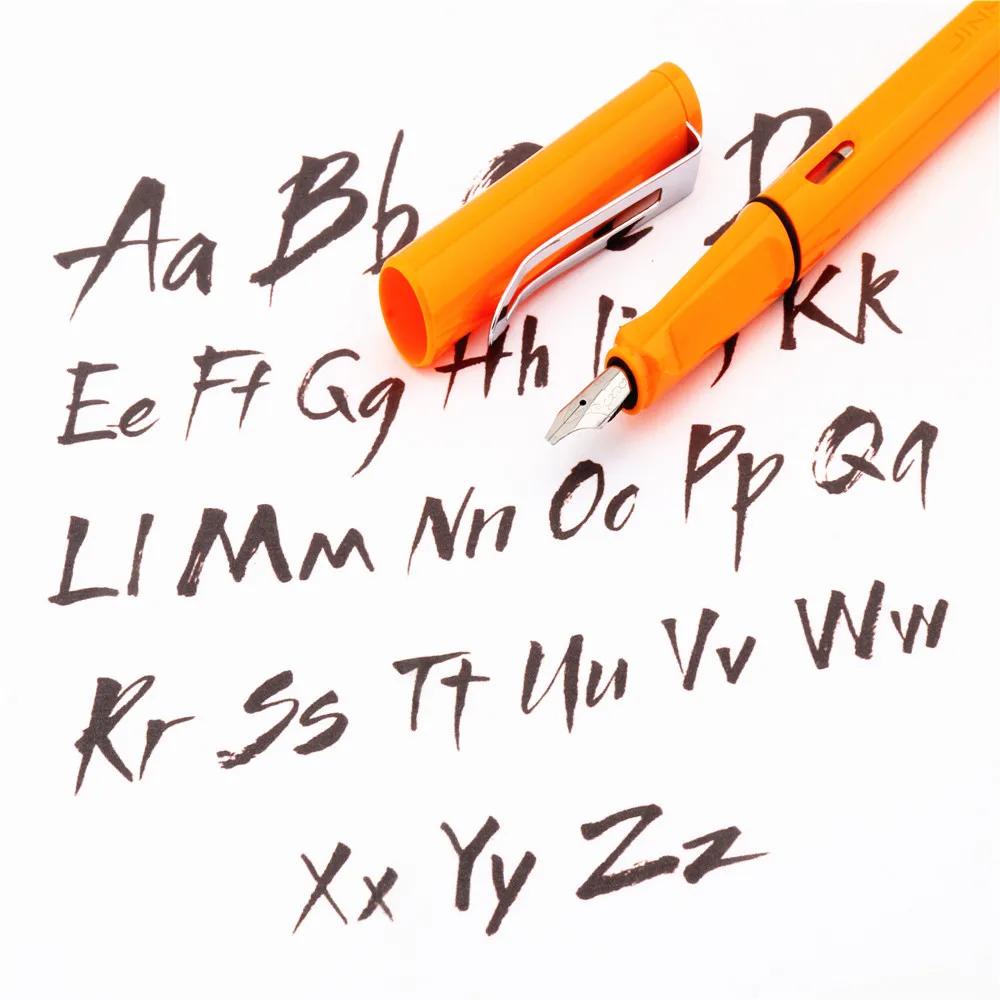 Aa Bb D
Ee Ff Gg Hh Ii Kk
Ll Mm Nn Oo Pp Qq
Rr Ss Tt Uu Vv Ww
Xx Yy Zz